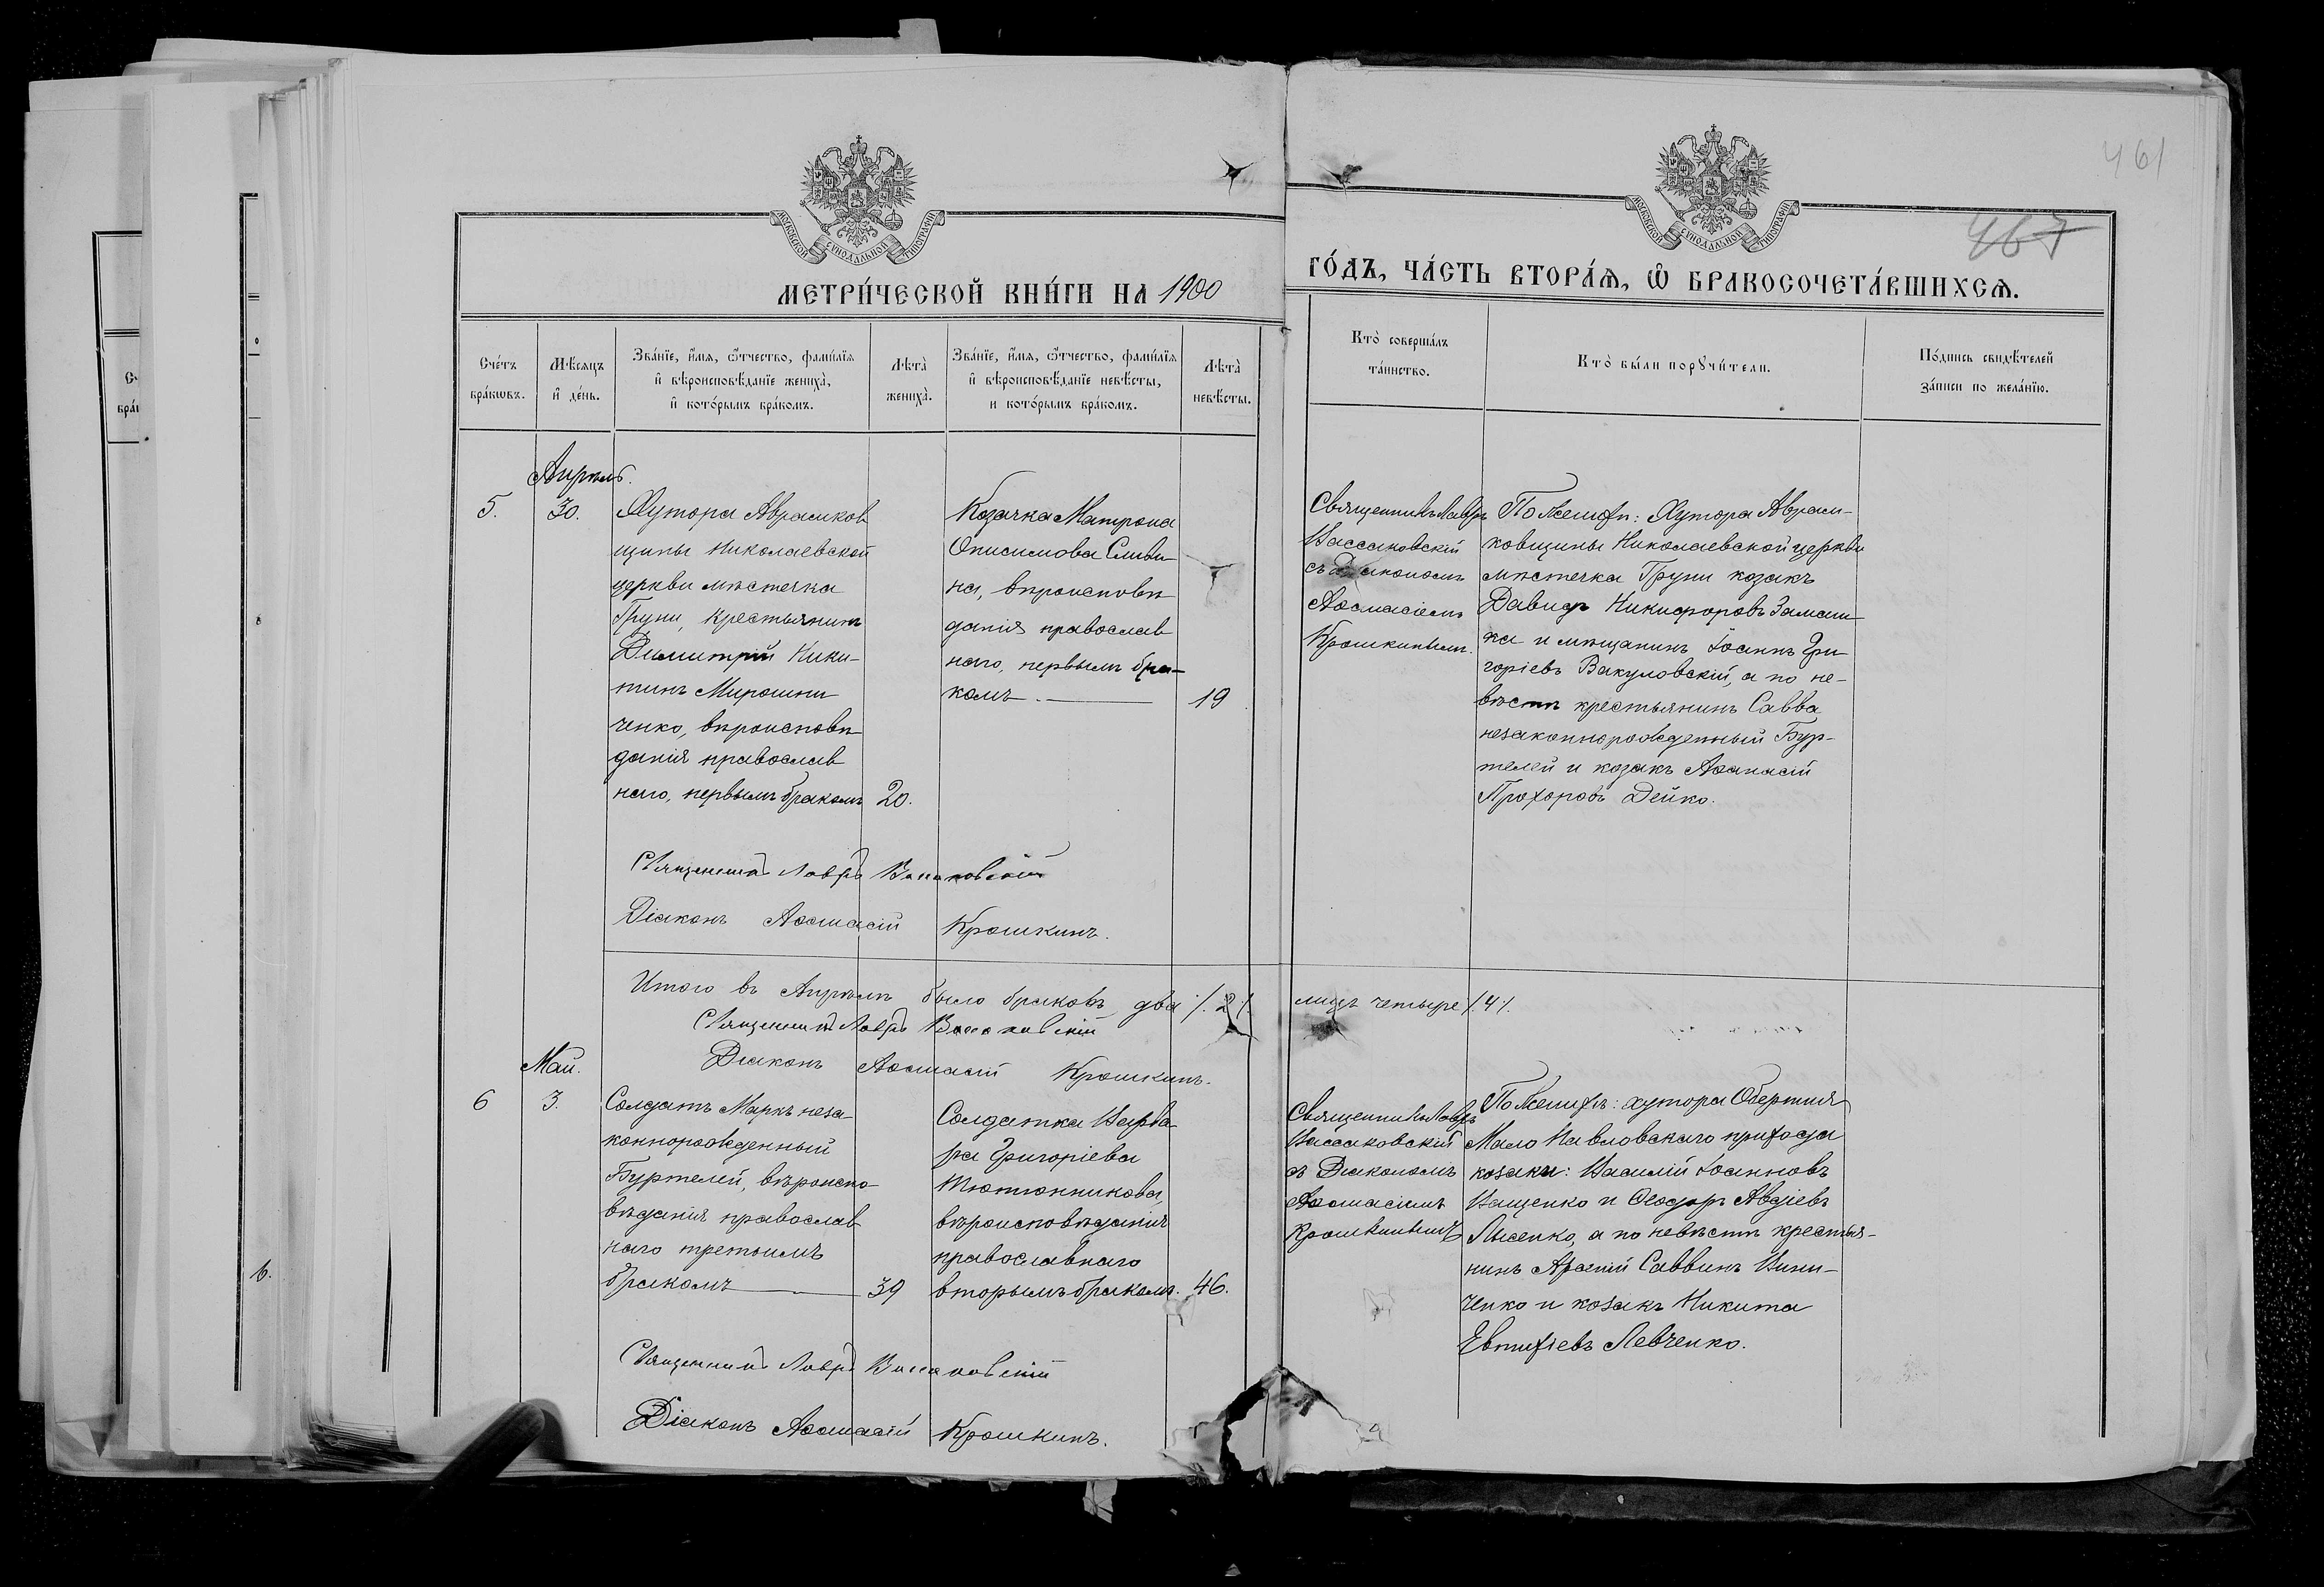 461
467
МОСКОВСКОЙ СѴНОДАЛЬНОЙ ТИПОГРАФІИ
МОСКОВСКОЙ СѴНОДАЛЬНОЙ ТИПОГРАФІИ
МЕТРИ́ЧЕСКОЙ КНИ́ГИ НА 1900
ГО́ДЪ, ЧА́СТЬ ВТОРА́Ѧ, Ѽ БРАКОСОЧЕТА́ВШИХСѦ.
Сче́тъ
бра́кѡвъ.
Мѣ́сяцъ
и҆ де́нь.
Зва́нїе, и҆́мя, ѻ҆́тчество, фами́лїя
и҆ вѣроисповѣ́данїе жениха̀,
и҆ кото́рымъ бра́комъ.
Лѣта̀
жениха̀.
Зва́нїе, и҆́мя, ѻ҆́тчество, фами́лїя
и҆ вѣроисповѣ́данїе невѣ́сты,
и кото́рымъ бра́комъ.
Лѣта̀
невѣ́сты.
Кто̀ соверша́лъ
та́инство.
Кто̀ бы́ли порꙋчи́тели.
По́дпись свидѣ́телей
за́писи по жела́нїю.
Апрѣль.
5.
30.
Хутора Аврамков
щины Николаевской
церкви мѣстечка
Груни, крестьянинъ
Димитрій Ники-
тинъ Мирошни
ченко, вѣроисповѣ
данія православ
наго, первымъ бракомъ
20.
Козачка Матрона
Онисимова Сливи
на, вѣроисповѣ
данія православ
наго, первымъ бра-
комъ.
19
Священникъ Лавръ
Вассаковскій
съ Діакономъ
Аѳанасіемъ
Крошкинымъ.
По женихѣ: Хутора Аврам-
ковщины Николаевской церкви
мѣстечка Груни козакъ
Давидъ Никифоровъ
и мѣщанинъ Іоаннъ Гри
горіевъ Вакуловскій, а по не-
вѣстѣ крестьянинъ Савва
незаконнорожденный Бур-
телей и козакъ Аѳанасій
Прохоровъ Дейко.
Священникъ Лавръ Вассаковскій
Діаконъ Аѳанасій Крошкинъ.
Итого въ Апрѣлѣ было браковъ два /.2/. лицъ четыре /.4/.
Священникъ Лавръ Вассаковскій
Діаконъ Аѳанасій Крошкинъ.
Май.
6
3.
Солдатъ Маркъ неза-
коннорожденный
Буртелей, вѣроиспо-
вѣданія православ
наго третьимъ
бракомъ
39
Солдатка Варва-
ра Григоріева
Тютюнникова,
вѣроисповѣданія
православнаго
вторымъ бракомъ.
46.
Священникъ Лавръ
Вассаковскій
съ Діакономъ
Аѳанасіемъ
Крошкинымъ
По женихѣ: хутора
Мало Павловскаго прихода
козаки: Василій Іоанновъ
Иащенко и Ѳеодоръ Авдіевъ
Лысенко, а по невѣстѣ крестья-
нинъ Саввинъ
и козакъ Никита
Евтихіевъ Левченко.
Священникъ Лавръ Вассаковскій
Діаконъ Аѳанасій Крошкинъ.